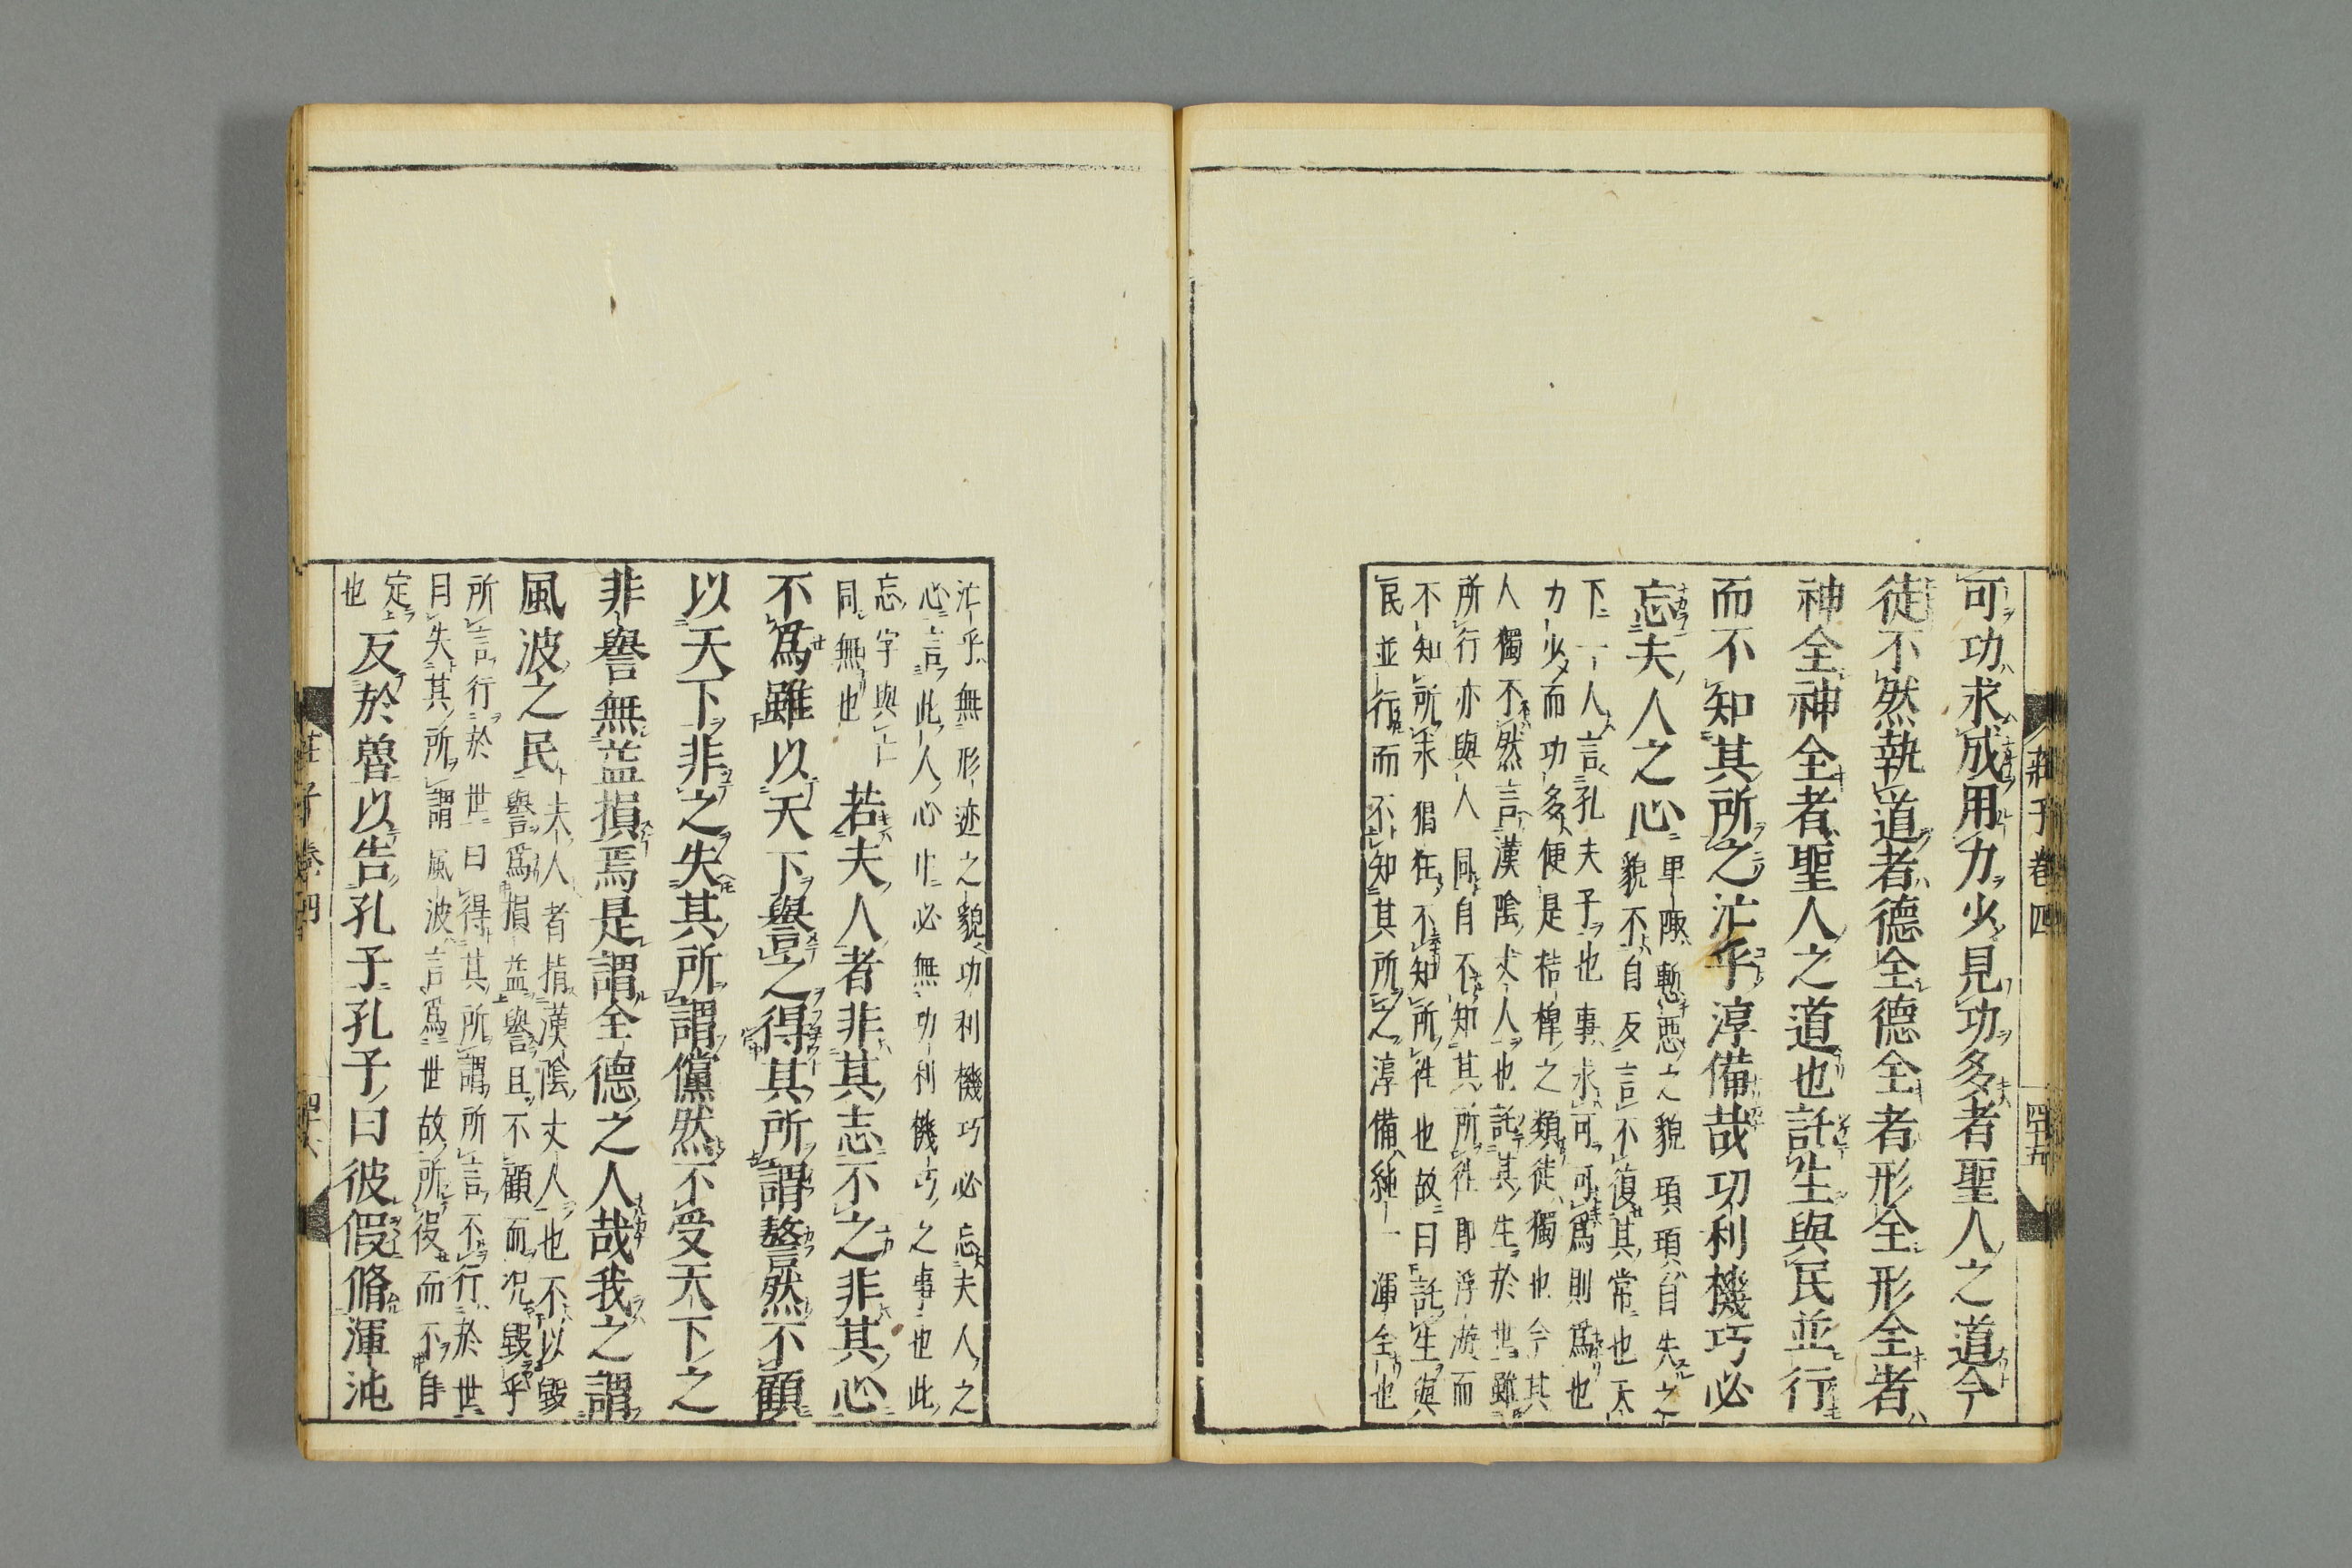 莊子卷四
四十五
可功求成用力少見功多者聖人之道今
徒不然執道者德全德全者形全形全者
神全神全者聖人之道也託生與民並行
而不知其所之汒乎淳備哉功利機巧必
忘夫人之心
卑陬慙恧之貌頊頊自失之
貌不自反言不復其常也天
下一人言孔夫子也事求可可爲則爲也
力少而功多便是桔槹之類徒獨也今其
人獨不然言漢陰丈人也託其生於世雖
所行亦與人同自不知其所往即浮游而
不知所求猖狂不知所往也故曰託生與
民並行而不知其所之淳備純一渾全也
汒乎無形迹之貌功利機巧必忘夫人之
心言此人心中必無功利機巧之事也此
忘字與亡
同無也
若夫人者非其志不之非其心
不爲雖以天下譽之得其所謂警然不顧
以天下非之失其所謂儻然不受天下之
非譽無益損焉是謂全德之人哉我之謂
風波之民
夫人者指漢陰丈人也不以毀
譽爲損益譽且不顧而況毀乎
所言行於世曰得其所謂所言不行於世
曰失其所謂風波言爲世故所役而不自
定
也
反於魯以告孔子孔子曰彼假脩渾沌
莊子卷四
四十六